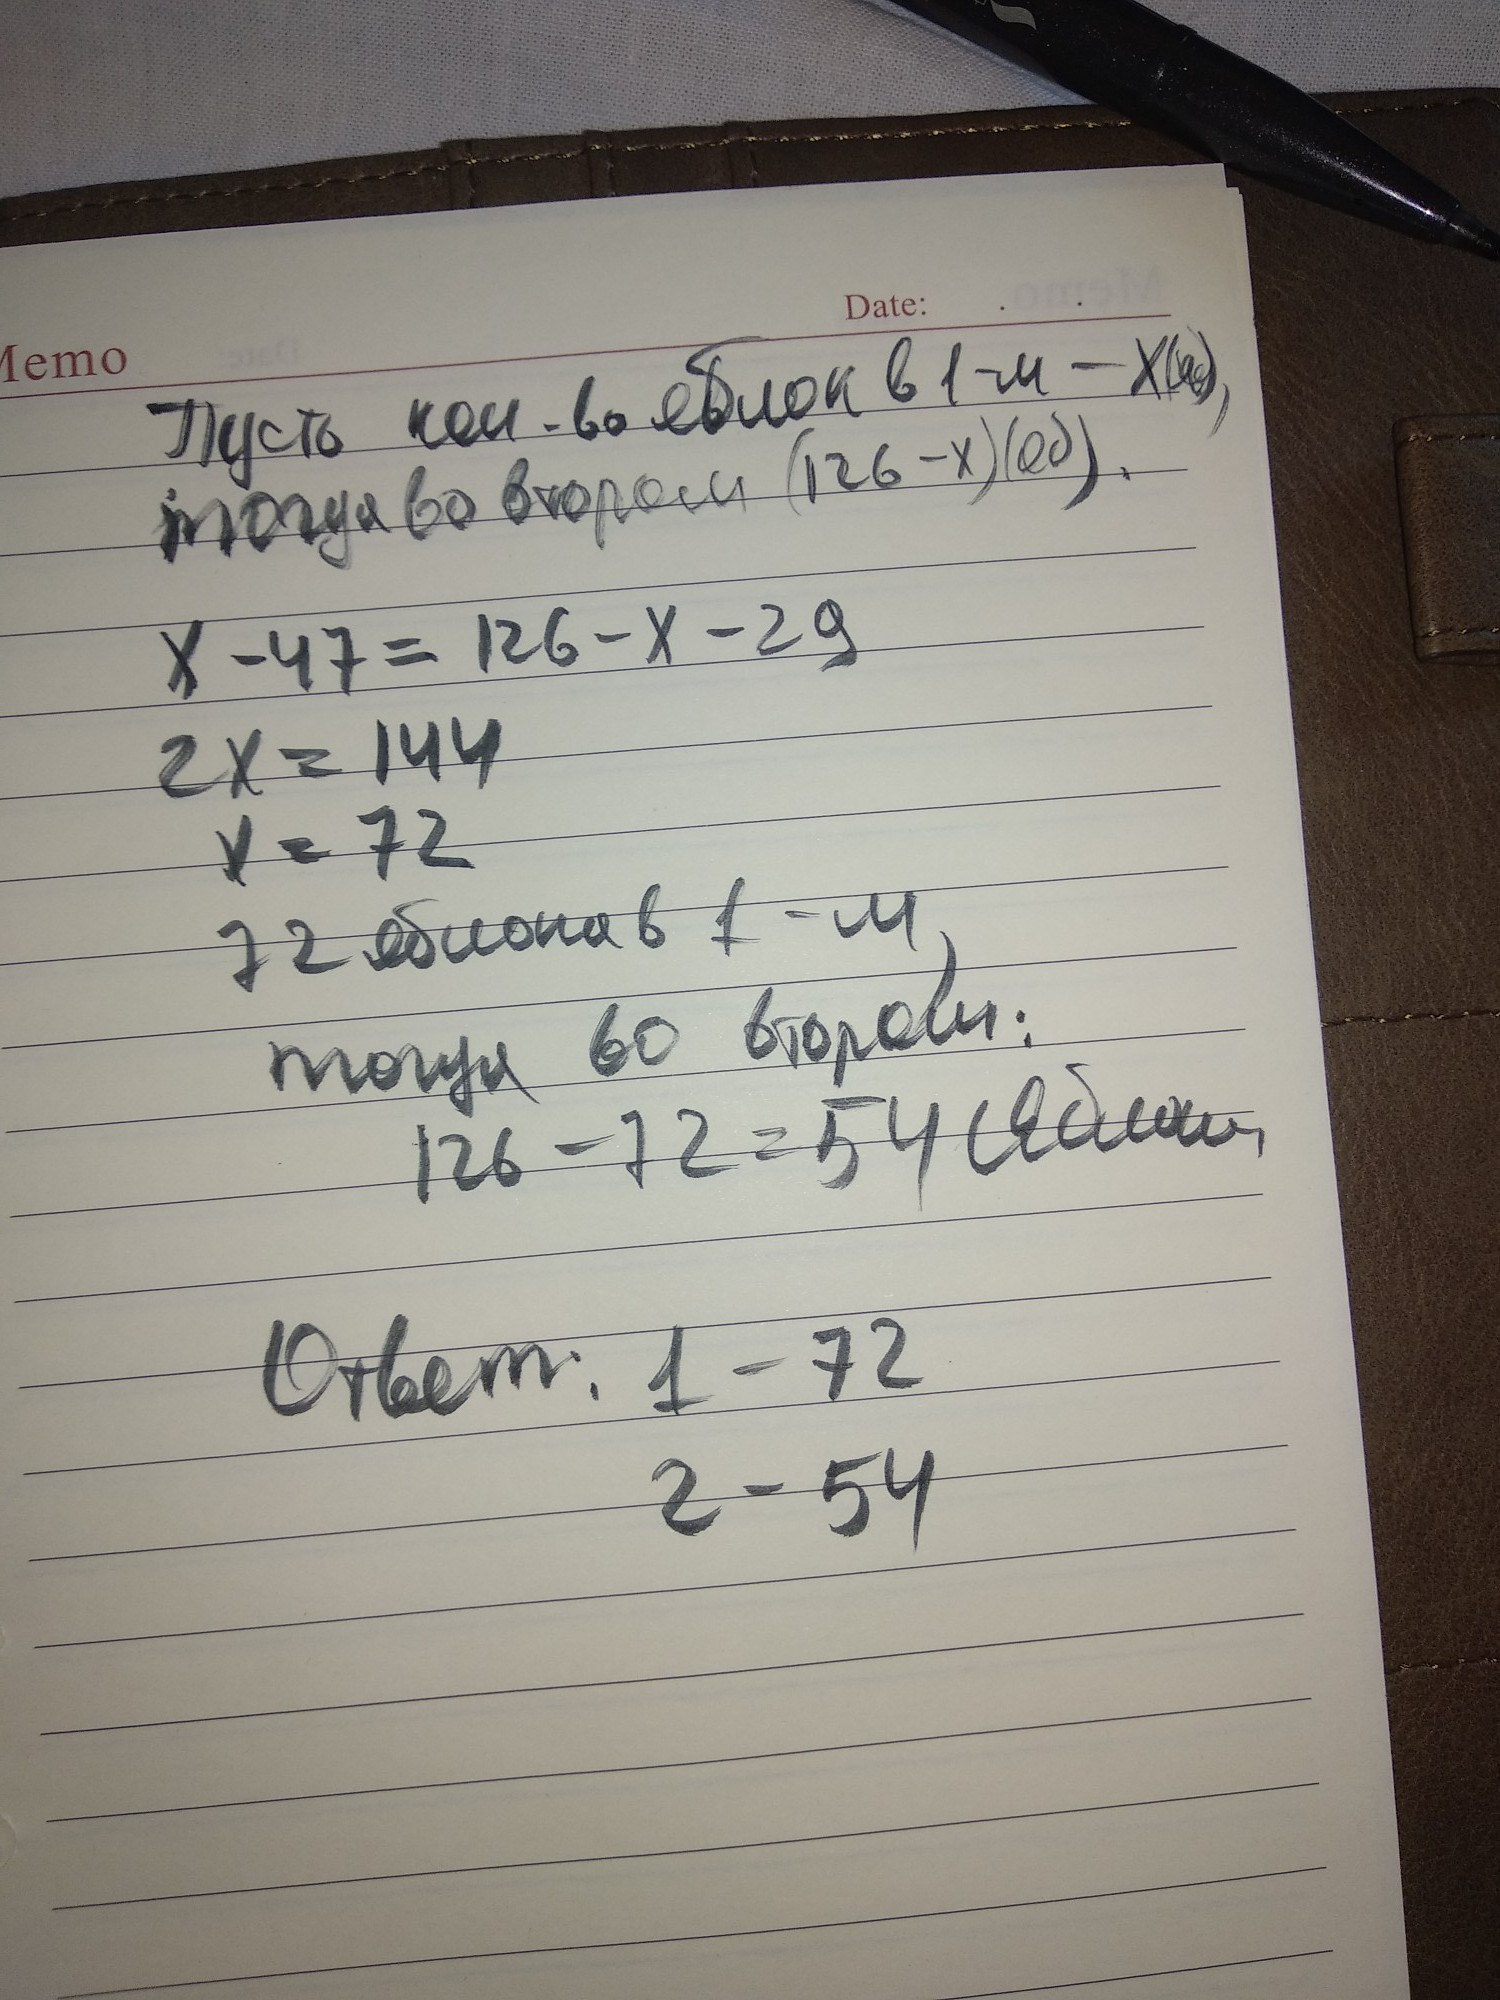 Memo
Date: . .
Пусть кол-во яблок в 1-м - x(яб),
тогда во втором (126-x)(яб).
x-47=126-x-29
2x=144
x=72
72 яблока в 1-м,
тогда во втором:
126-72=54 (яблок)
Ответ: 1-72
2-54